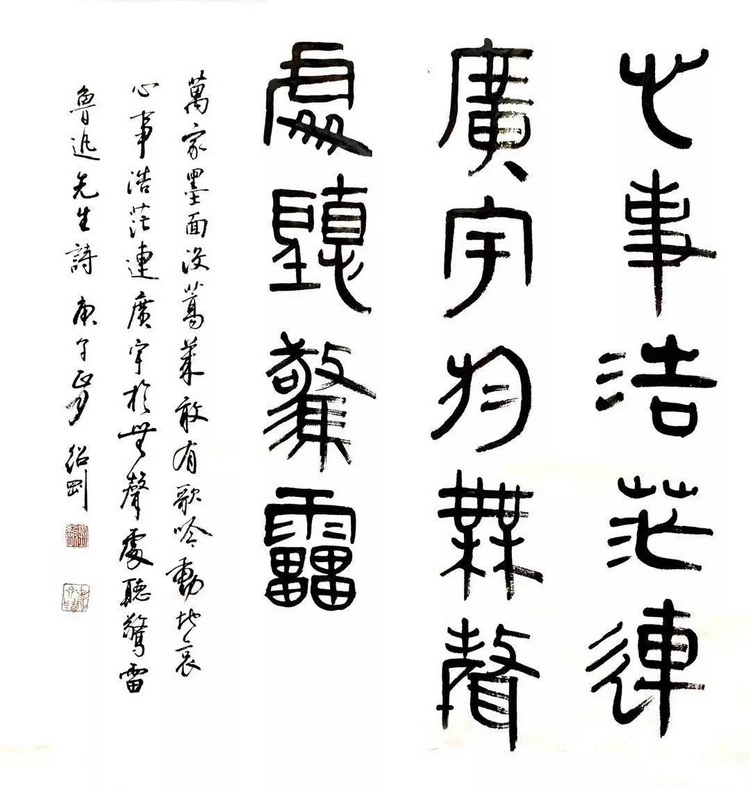 心事浩茫連
廣宇於無聲
處聽驚雷
萬家墨面沒蒿萊敢有歌吟動地哀
心事浩茫連廣宇於無聲處聽驚雷
魯迅先生詩 庚子 紹剛